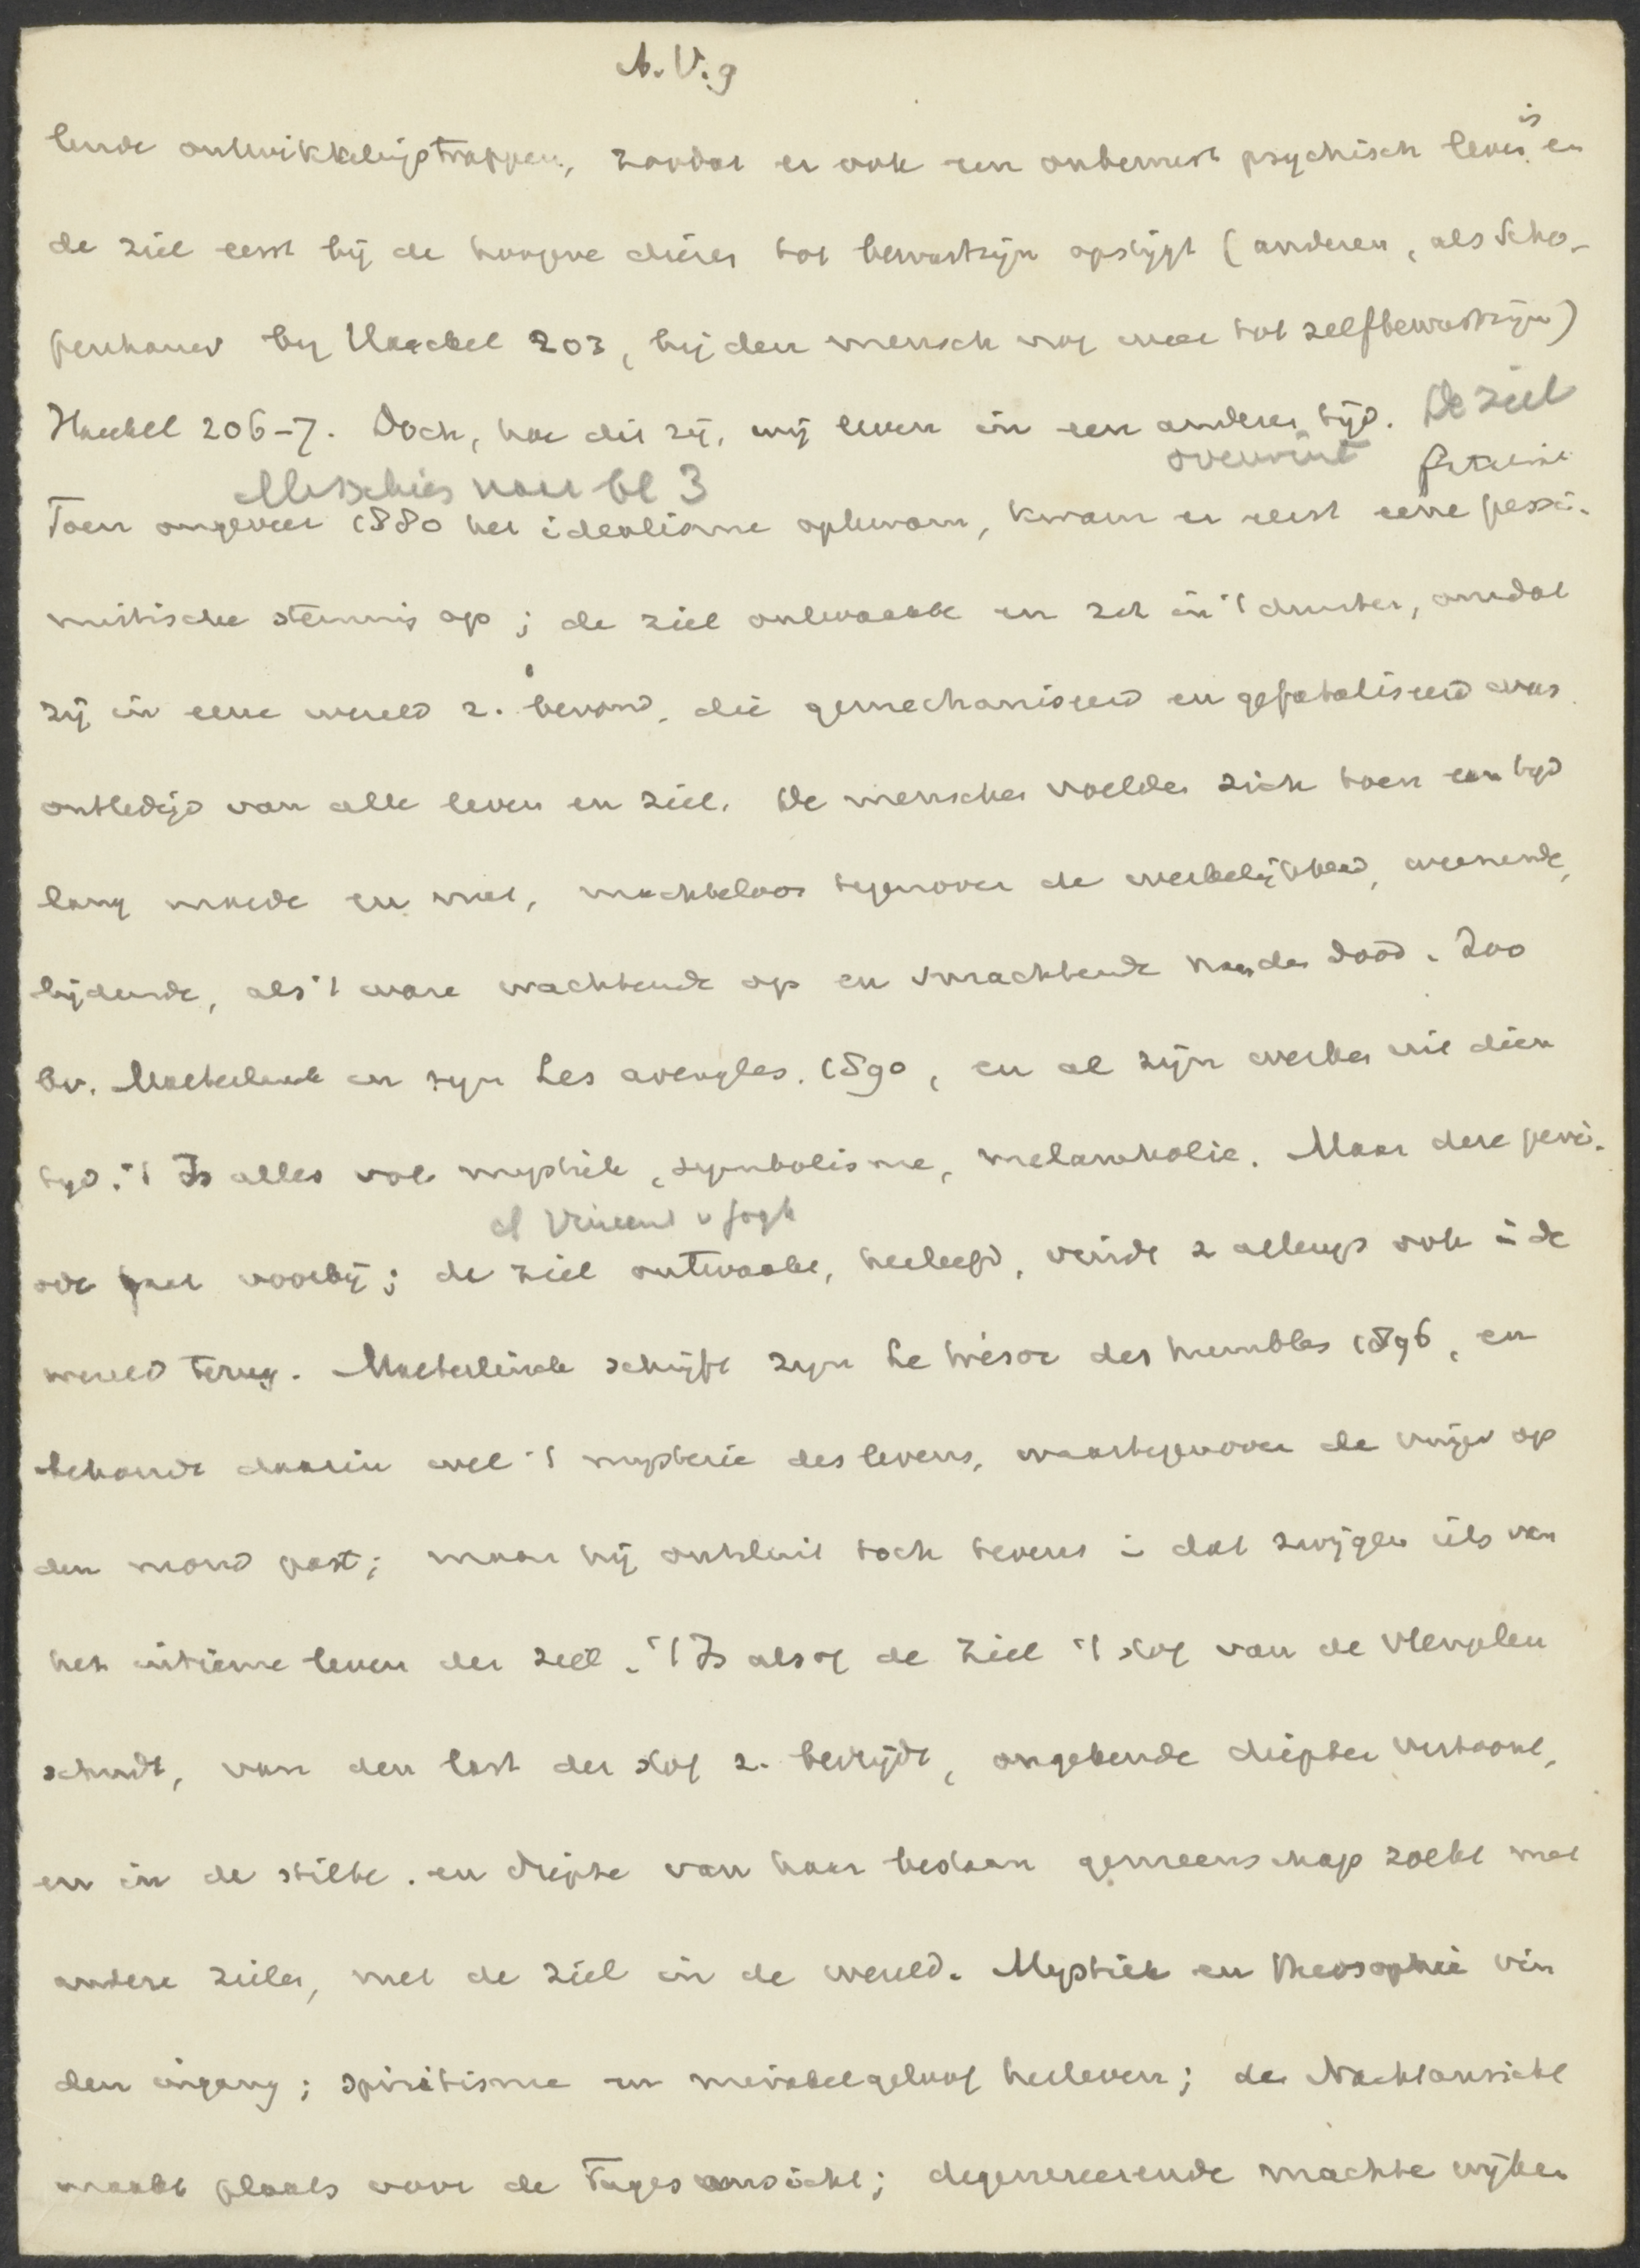 A. V. 9
lende ontwikkelingstrappen, zoodat er ook een onbewust psychisch leven is en
de ziel eerst bij de hoogere dieren tot bewustzijn opstijgt (anderen, als Scho-
penhauer bij Haeckel 203, bij den mensch nog weer tot zelfbewustzijn)
Haeckel 206-7. Doch, hoe dit zij, wij leven in een anderen tijd. De ziel
overwint
Misschien naar bl 3
Toen ongeveer 1880 het idealisme opkwam, kwam er eerst eene pessi-
mistische stemming op; de ziel ontwaakte en zat in 't duister, omdat
zij in eene wereld z. bevond, die gemechaniseerd en gefataliseerd was
ontledigd van alle leven en ziel. De menschen voelden zich toen een tijd
lang moede en mat, machteloos tegenover de werkelijkheid, weenende,
lijdende, als 't ware wachtende op en smachtende naar den dood. Zoo
bv. Maeterlinck in zijn Les aveugles. 1890, en al zijn werken uit dien
tijd. 't Is alles vol mystiek, symbolisme, melancholie. Maar deze peri-
cf Vincent v Gogh
ode gaat voorbij; de ziel ontwaakt, herleeft, vindt z allengs ook i de
wereld terug. Maeterlinck schrijft zijn Le trésor des humbles 1896, en
behandt daarin wel 't mysterie des levens, waartegenover de vinger op
den mond past; maar hij onthult toch tevens i dat zwijgen iets van
het intieme leven der ziel. 't Is alsof de ziel 't stof van de vleugelen
schudt, van den last der stof z. bevrijdt, ongekende diepten vertoont,
en in de stilte en diepte van haar bestaan gemeenschap zoekt met
andere zielen, met de ziel in de wereld. Mystiek en theosophie vin
den ingang; spiritisme en mirakelgeloof herleven; de Nachtansicht
maakt plaats voor de Tagesansicht; degenereerende machten wijken